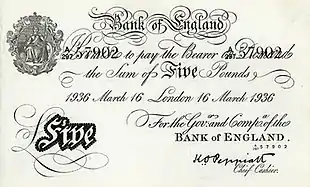 Bank of England
A/297 57902 A/297 57902
Promise to pay the Bearer on Demand
the Sum of Five Pounds
1936 March 16 London 16 March 1936
For the Govr. and Compa. of the
BANK OF ENGLAND.
A/297 57902
£Five
K O Peppiatt
Chief Cashier.